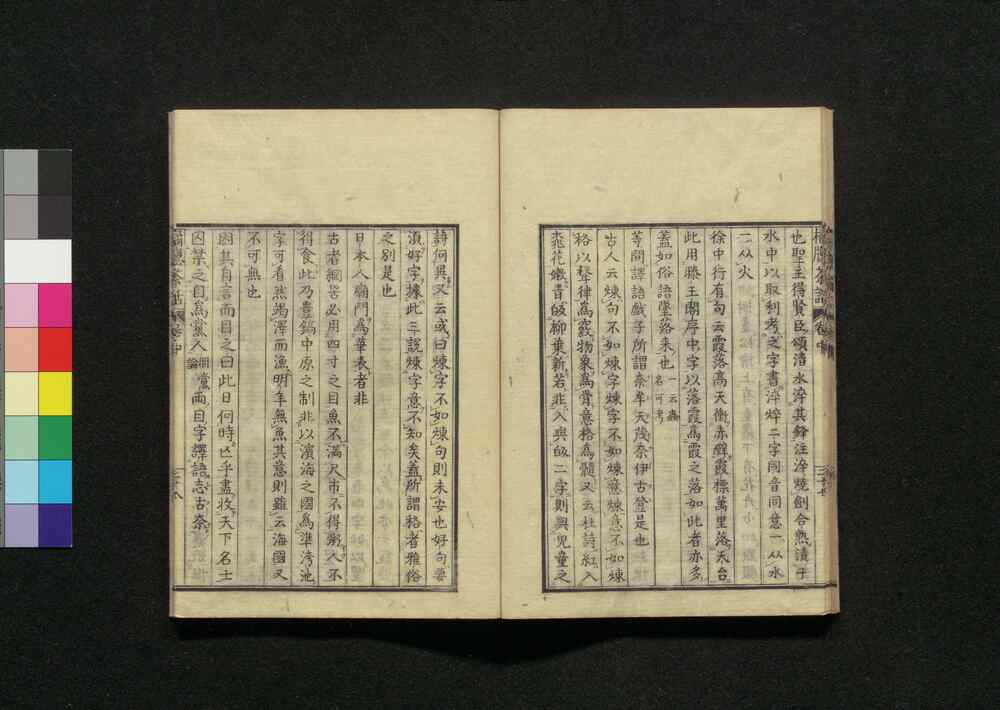 橘牕茶話 卷中
也聖主得賢臣頌清水淬其鋒注淬燒劍合熱漬于
水中以取利考之字書淬焠二字同音同意一从水
一从火
徐中行有句云霞落高天衡赤壁霞標萬里落天台
此用滕王閣序中字以落霞爲霞之落如此者亦多
蓋如俗語墜落來也一云蟲名可考
等閒謂語戲子所謂奈牟天幾奈伊古登是也
古人云煉句不如煉字煉字不如煉意煉意不如煉
格以聲律爲竅物象爲骨意格爲髓又云杜詩紅入
桃花嫩青皈柳葉新若非入與皈二字則與兒童之
詩何異又云或曰煉字不如煉句則未安也好句要
須好字據此三說煉字意不知矣蓋所謂格者雅俗
之別是也
日本人廟門爲華表者非
古者網罟必用四寸之目魚不滿尺市不得粥人不
得食此乃豊鎬中原之制非以濱海之國爲準湾池
字可看然竭澤而漁明年無魚其意則雖云海國又
不可無也
囱其自言而目之曰此日何時亡乎盡收天下名士
囚禁之目爲黨人細論黨両目字譯語志古奈
卷中
三十七
三十八